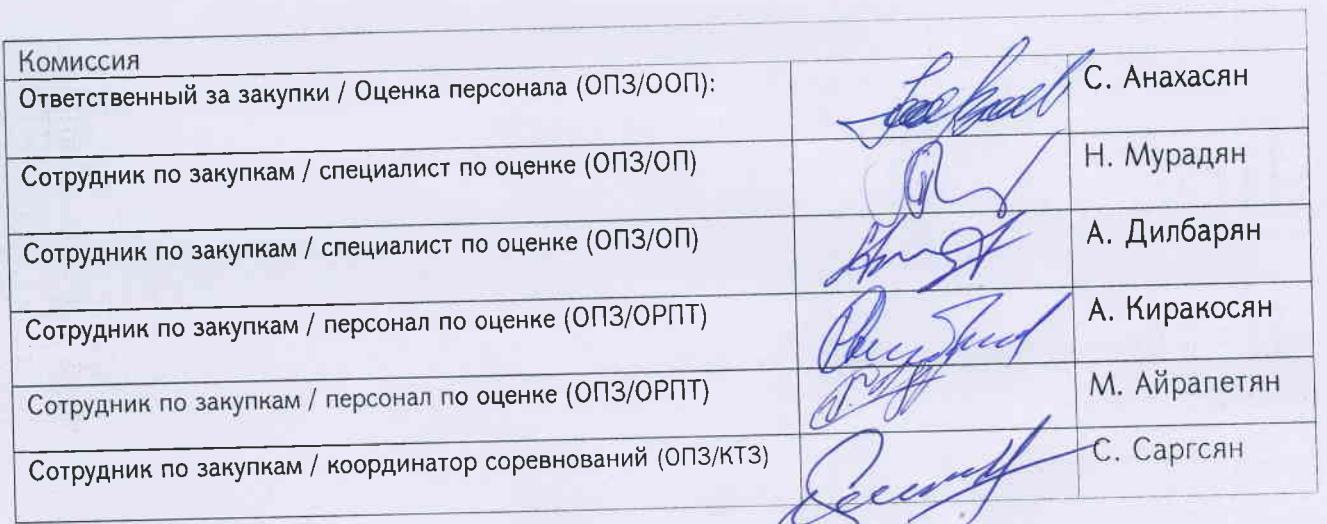 Комиссия
Ответственный за закупки / Оценка персонала (ОПЗ/ООП):
С. Анахасян
Сотрудник по закупкам / специалист по оценке (ОПЗ/ОП)
Н. Мурадян
Сотрудник по закупкам / специалист по оценке (ОПЗ/ОП)
А. Дилбарян
Сотрудник по закупкам / персонал по оценке (ОПЗ/ОРПТ)
А. Киракосян
Сотрудник по закупкам / персонал по оценке (ОПЗ/ОРПТ)
М. Айрапетян
Сотрудник по закупкам / координатор соревнований (ОПЗ/КТЗ)
С. Саргсян